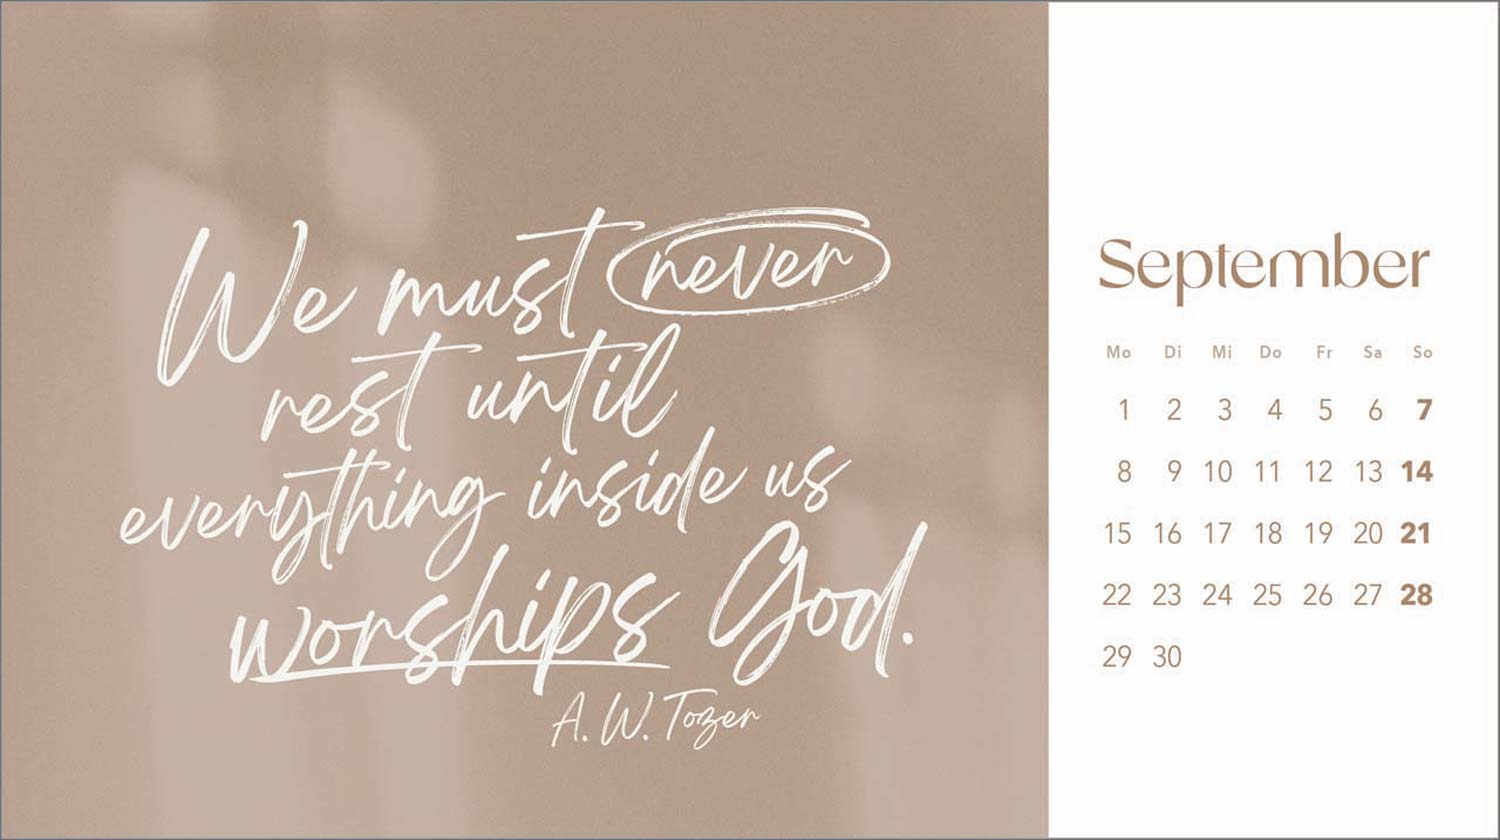 We must never
rest until
everything inside us
worships God.
A. W. Tozer
September
Mo Di Mi Do Fr Sa So
1 2 3 4 5 6 7
8 9 10 11 12 13 14
15 16 17 18 19 20 21
22 23 24 25 26 27 28
29 30